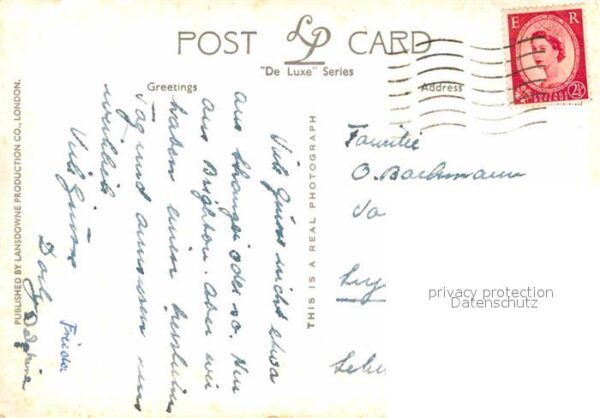 POST LP CARD
"De Luxe" Series
Greetings
Address
E R
2½
PUBLISHED BY LANSDOWNE PRODUCTION CO., LONDON.
THIS IS A REAL PHOTOGRAPH
Viele Grüsse nicht etwa
aus oder so. Nur
aus Brighton. Aber wir
haben einen herrlichen
Tag und amüsieren uns
wirklich
Viele Grüsse
Frieda
Familie
O. Bachmann
privacy protection
Datenschutz